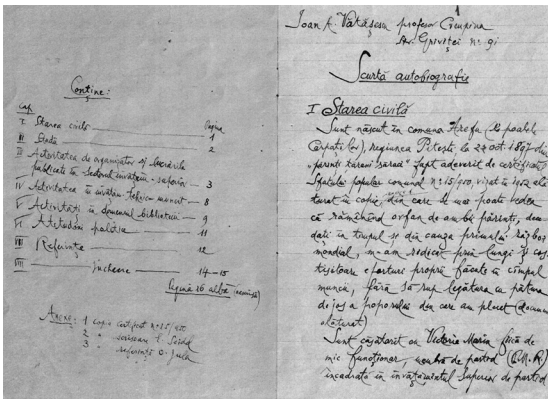 Conține:
Cap. Pagina
I Starea civilă 1
II Studii 2
III Activitatea de organizator și lucrările
publicate în sectorul învățăm. superior 3
IV Activitatea în învățăm. tehnic 8
V Activități în domeniul bibliotecii 9
VI Atitudini politice 11
VII Referințe 12
VIII Încheere 14-15
Pagină 16 albă
Anexe: 1 copie certificat nr. 15/
2 " scrisoare
3 " referință
Ioan A. Vătășescu profesor
Av. Griviței nr. 91
Scurtă autobiografie
I Starea civilă
Sunt născut în comuna Arefu (la poalele
Carpaților), regiunea Pitești, la 22 oct 1897 din
„părinți țărani săraci" fapt adeverit de certificatul
Sfatului popular comunal nr. 15/950, vizat în 1952 ală-
turat în copie, din care se mai poate vedea
că rămînînd orfan de ambii părinți,
dați în timpul și din cauza primului război
mondial, m-am ridicat prin lungi și cos-
tisitoare eforturi proprii făcute în cîmpul
muncii, fără să rup legătura cu pătura
de jos a poporului din care am plecat (document
alăturat)
Sunt căsătorit cu Victoria Maria fiică de
mic funcționar, membră de partid (P.M.R)
încadrată în învățămîntul superior de partid